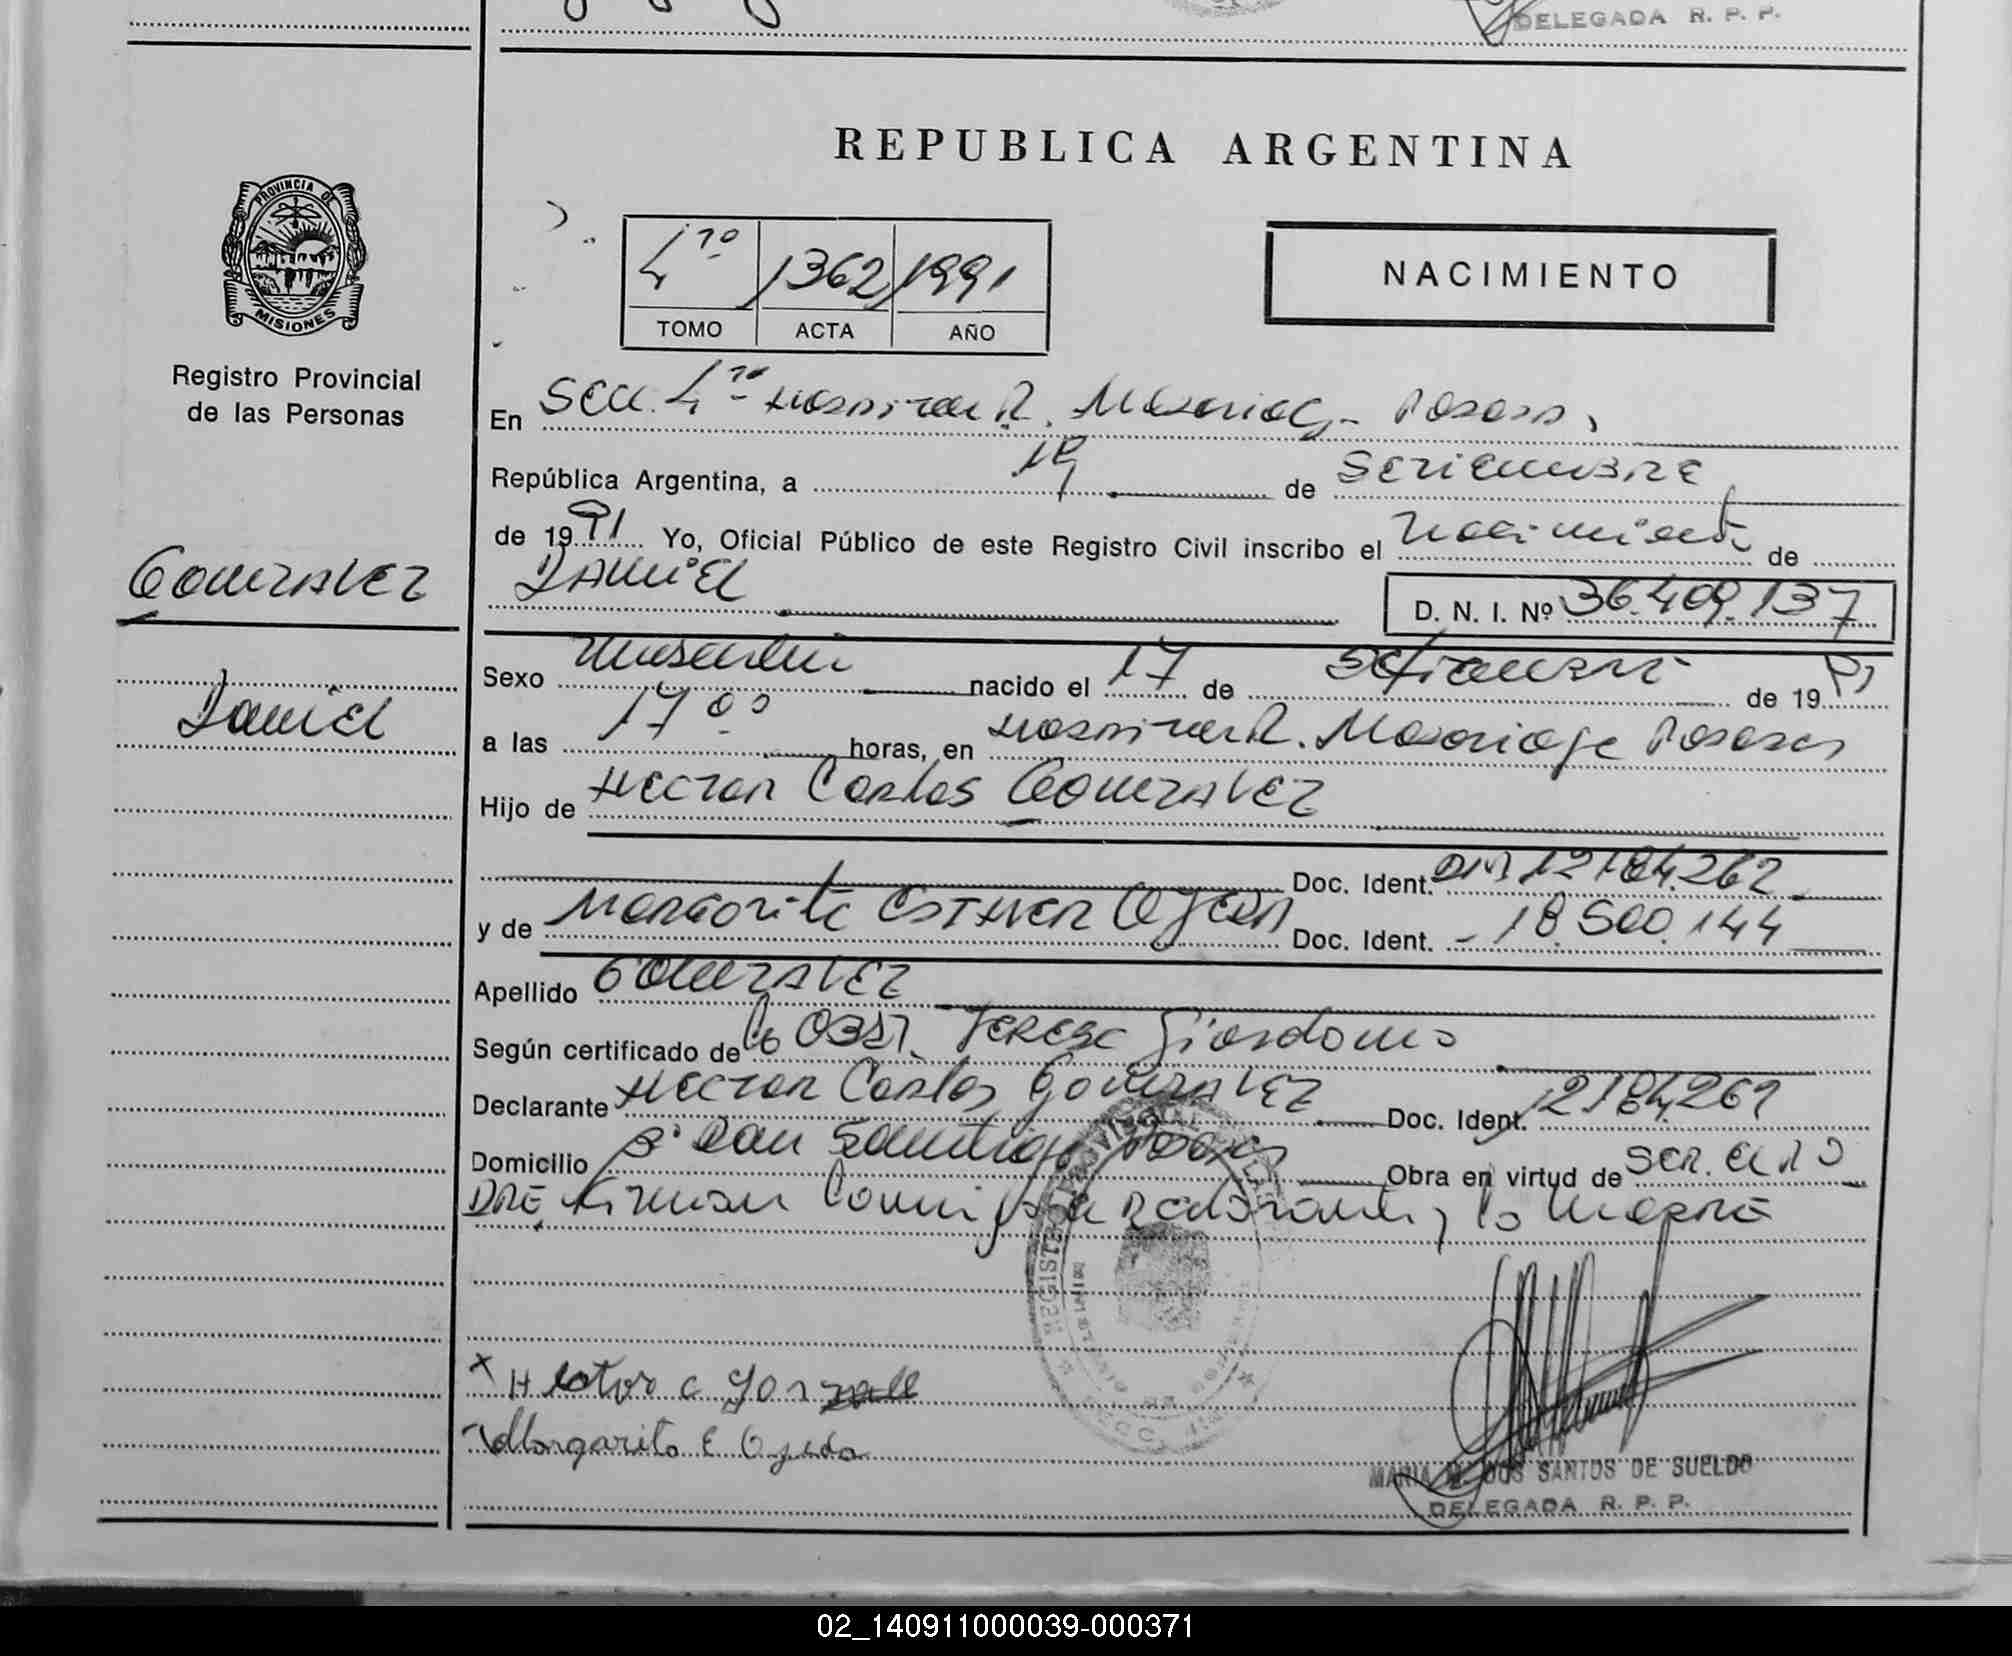 DELEGADA R. P. P.
REPUBLICA ARGENTINA
PROVINCIA DE
MISIONES
Registro Provincial
de las Personas
4to 1362 1991
TOMO ACTA AÑO
NACIMIENTO
En Secc. 4ta Hospital R. Madariaga - Posadas,
República Argentina, a 19 de Setiembre
de 1991 Yo, Oficial Público de este Registro Civil inscribo el nacimiento de
GONZALEZ
DANIEL D. N. I. Nº 36.409.137
Sexo Masculino nacido el 17 de Setiembre de 1991
Daniel
a las 17 00 horas, en Hospital R. Madariaga Posadas
Hijo de Hector Carlos GONZALEZ
Doc. Ident. DNI 12184.262
y de Margarita Esther Ojeda Doc. Ident. - 18.500.144
Apellido GONZALEZ
Según certificado de la Obst. Terese Giordano
Declarante Hector Carlos GONZALEZ Doc. Ident. 12184269
Domicilio Bº San Santiago Posadas Obra en virtud de ser el Pa
DRE, Firman Conmigo el Declarante y la Madre
Hector C Gonzale
Margarita E Ojeda
MARIA DOS SANTOS DE SUELDO
DELEGADA R. P. P.
02_140911000039-000371